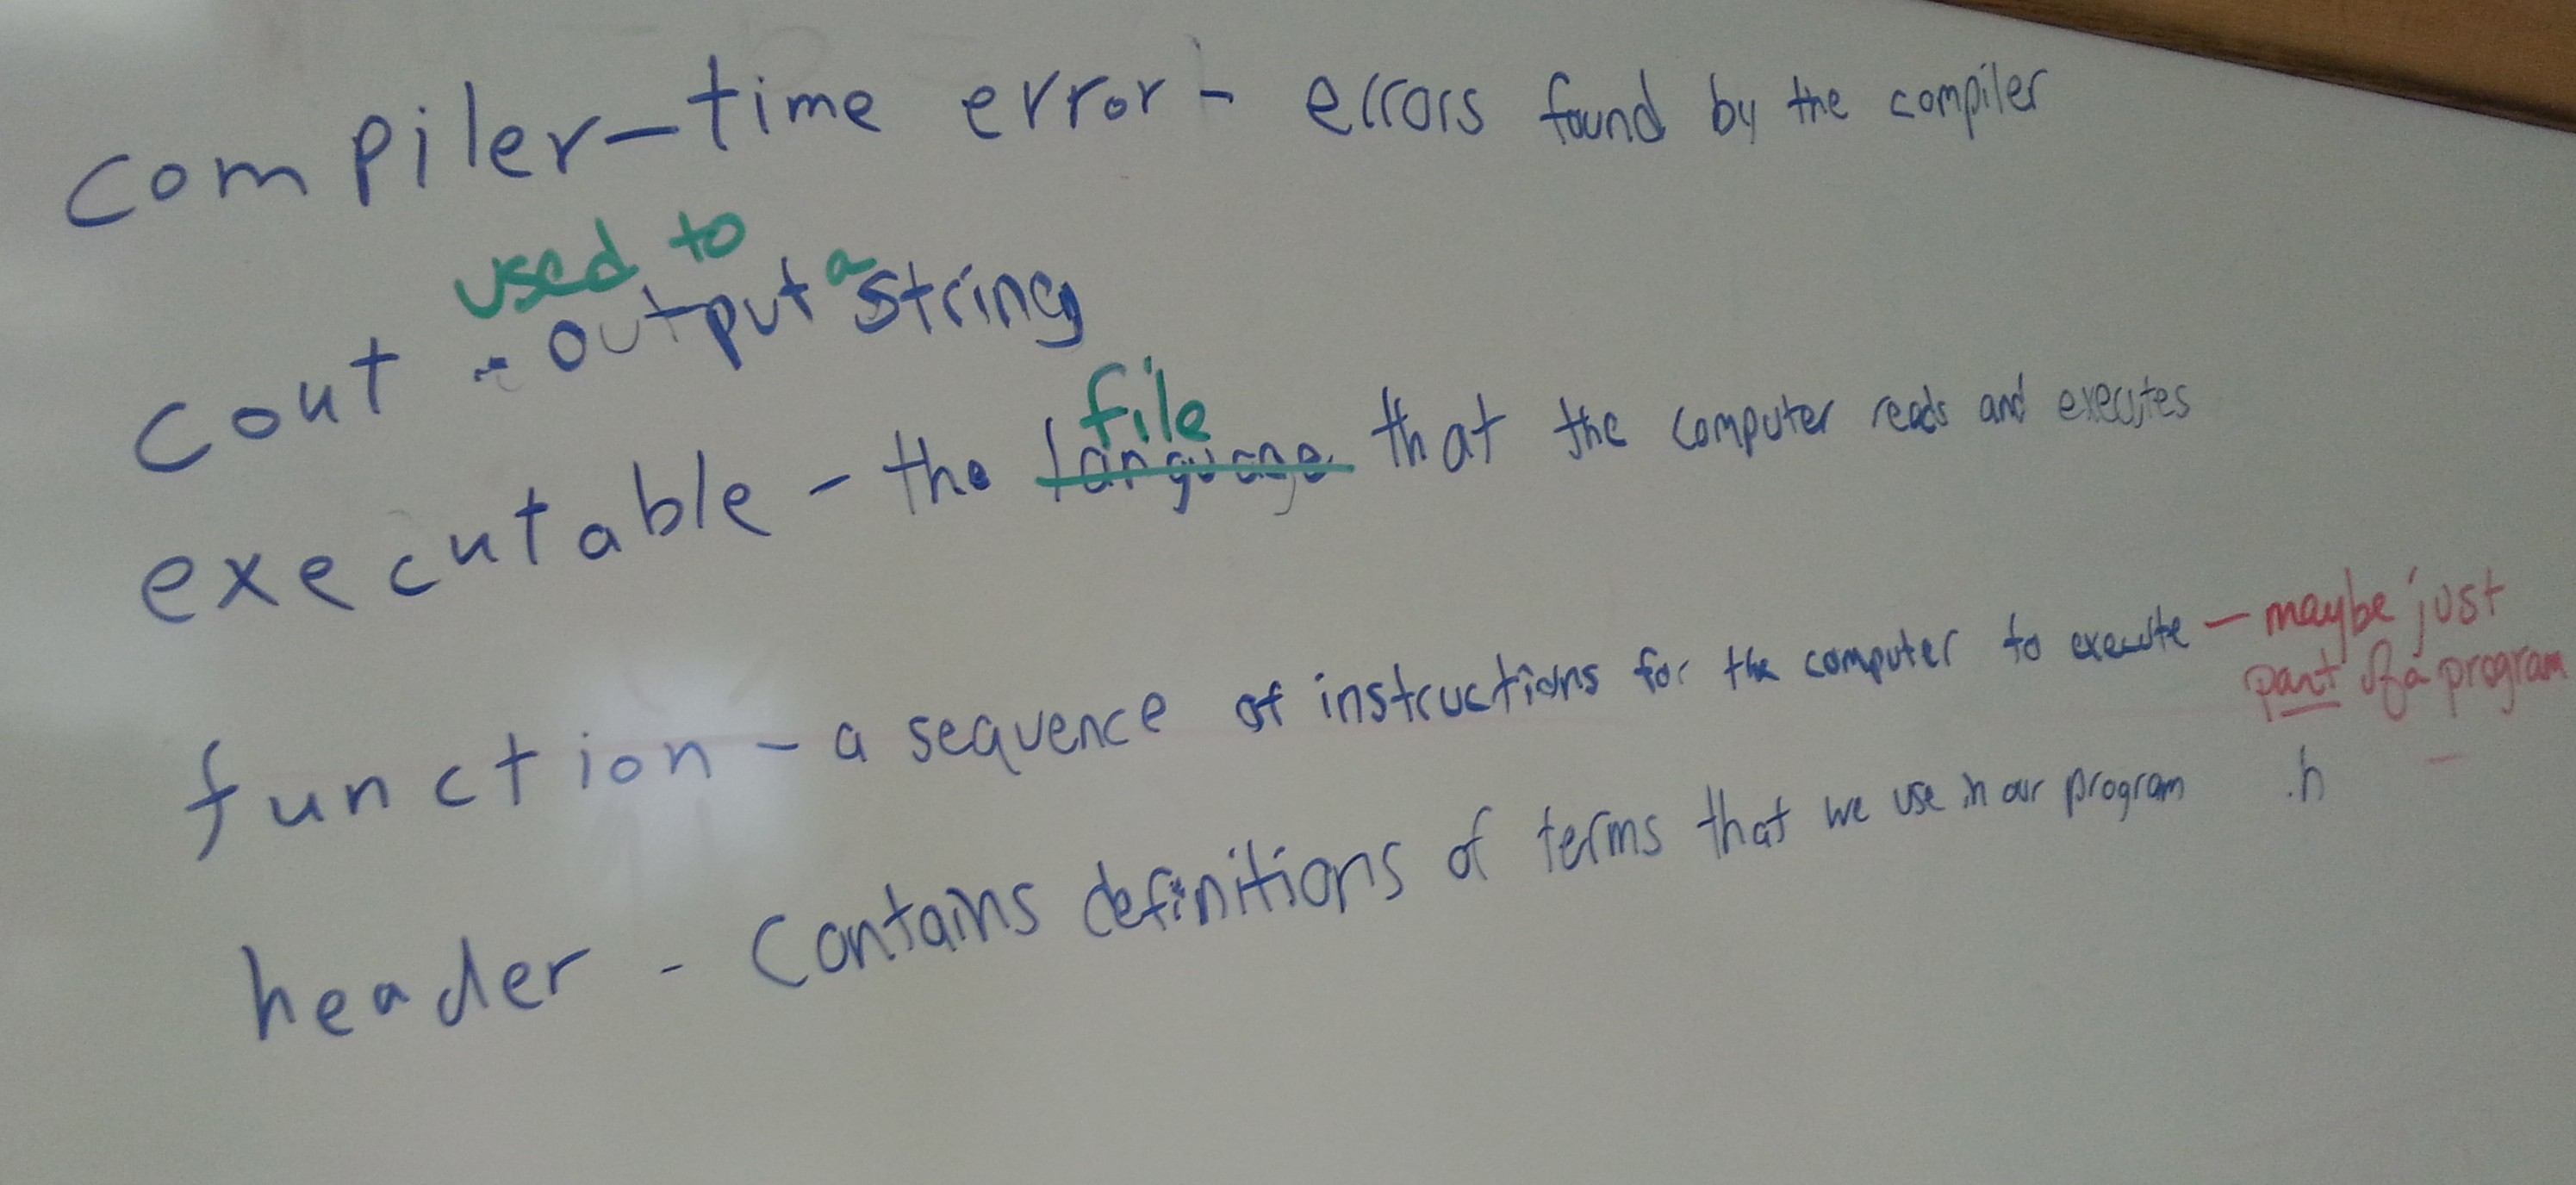 compiler-time error - errors found by the compiler
used to
cout - output a string
file
executable - the language that the computer reads and executes
function - a sequence of instructions for the computer to execute - maybe just
part of a program
header - Contains definitions of terms that we use in our program .h